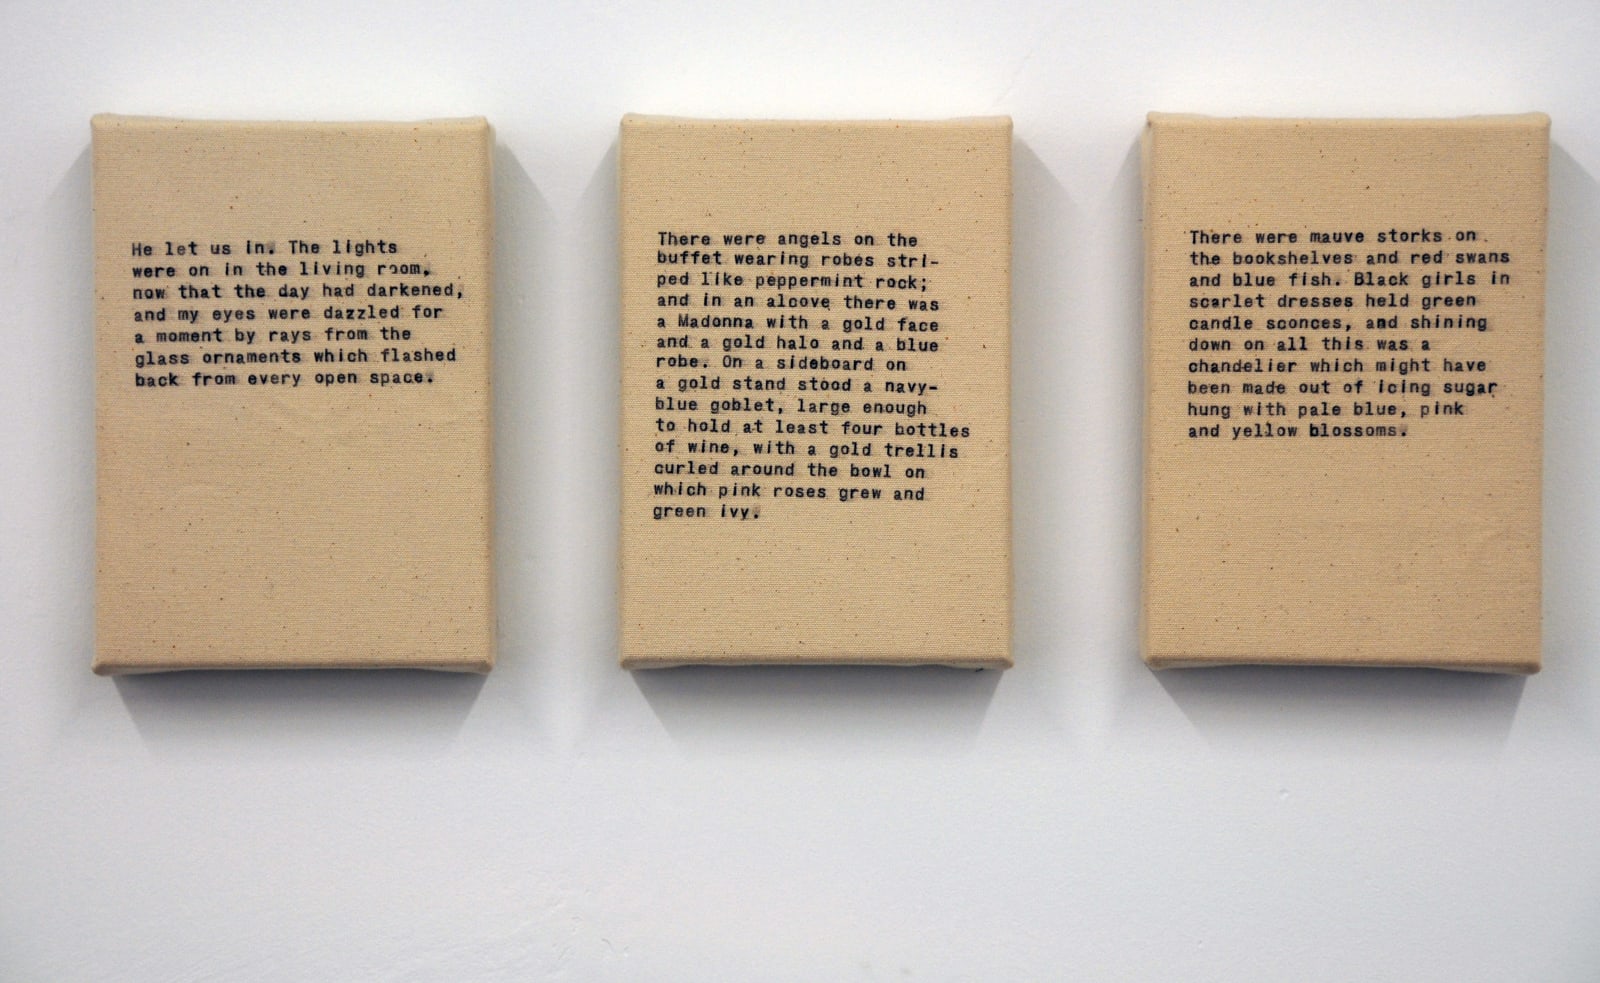 He let us in. The lights
were on in the living room,
now that the day had darkened,
and my eyes were dazzled for
a moment by rays from the
glass ornaments which flashed
back from every open space.
There were angels on the
buffet wearing robes stri-
ped like peppermint rock;
and in an alcove there was
a Madonna with a gold face
and a gold halo and a blue
robe. On a sideboard on
a gold stand stood a navy-
blue goblet, large enough
to hold at least four bottles
of wine, with a gold trellis
curled around the bowl on
which pink roses grew and
green ivy.
There were mauve storks on
the bookshelves and red swans
and blue fish. Black girls in
scarlet dresses held green
candle sconces, and shining
down on all this was a
chandelier which might have
been made out of icing sugar
hung with pale blue, pink
and yellow blossoms.